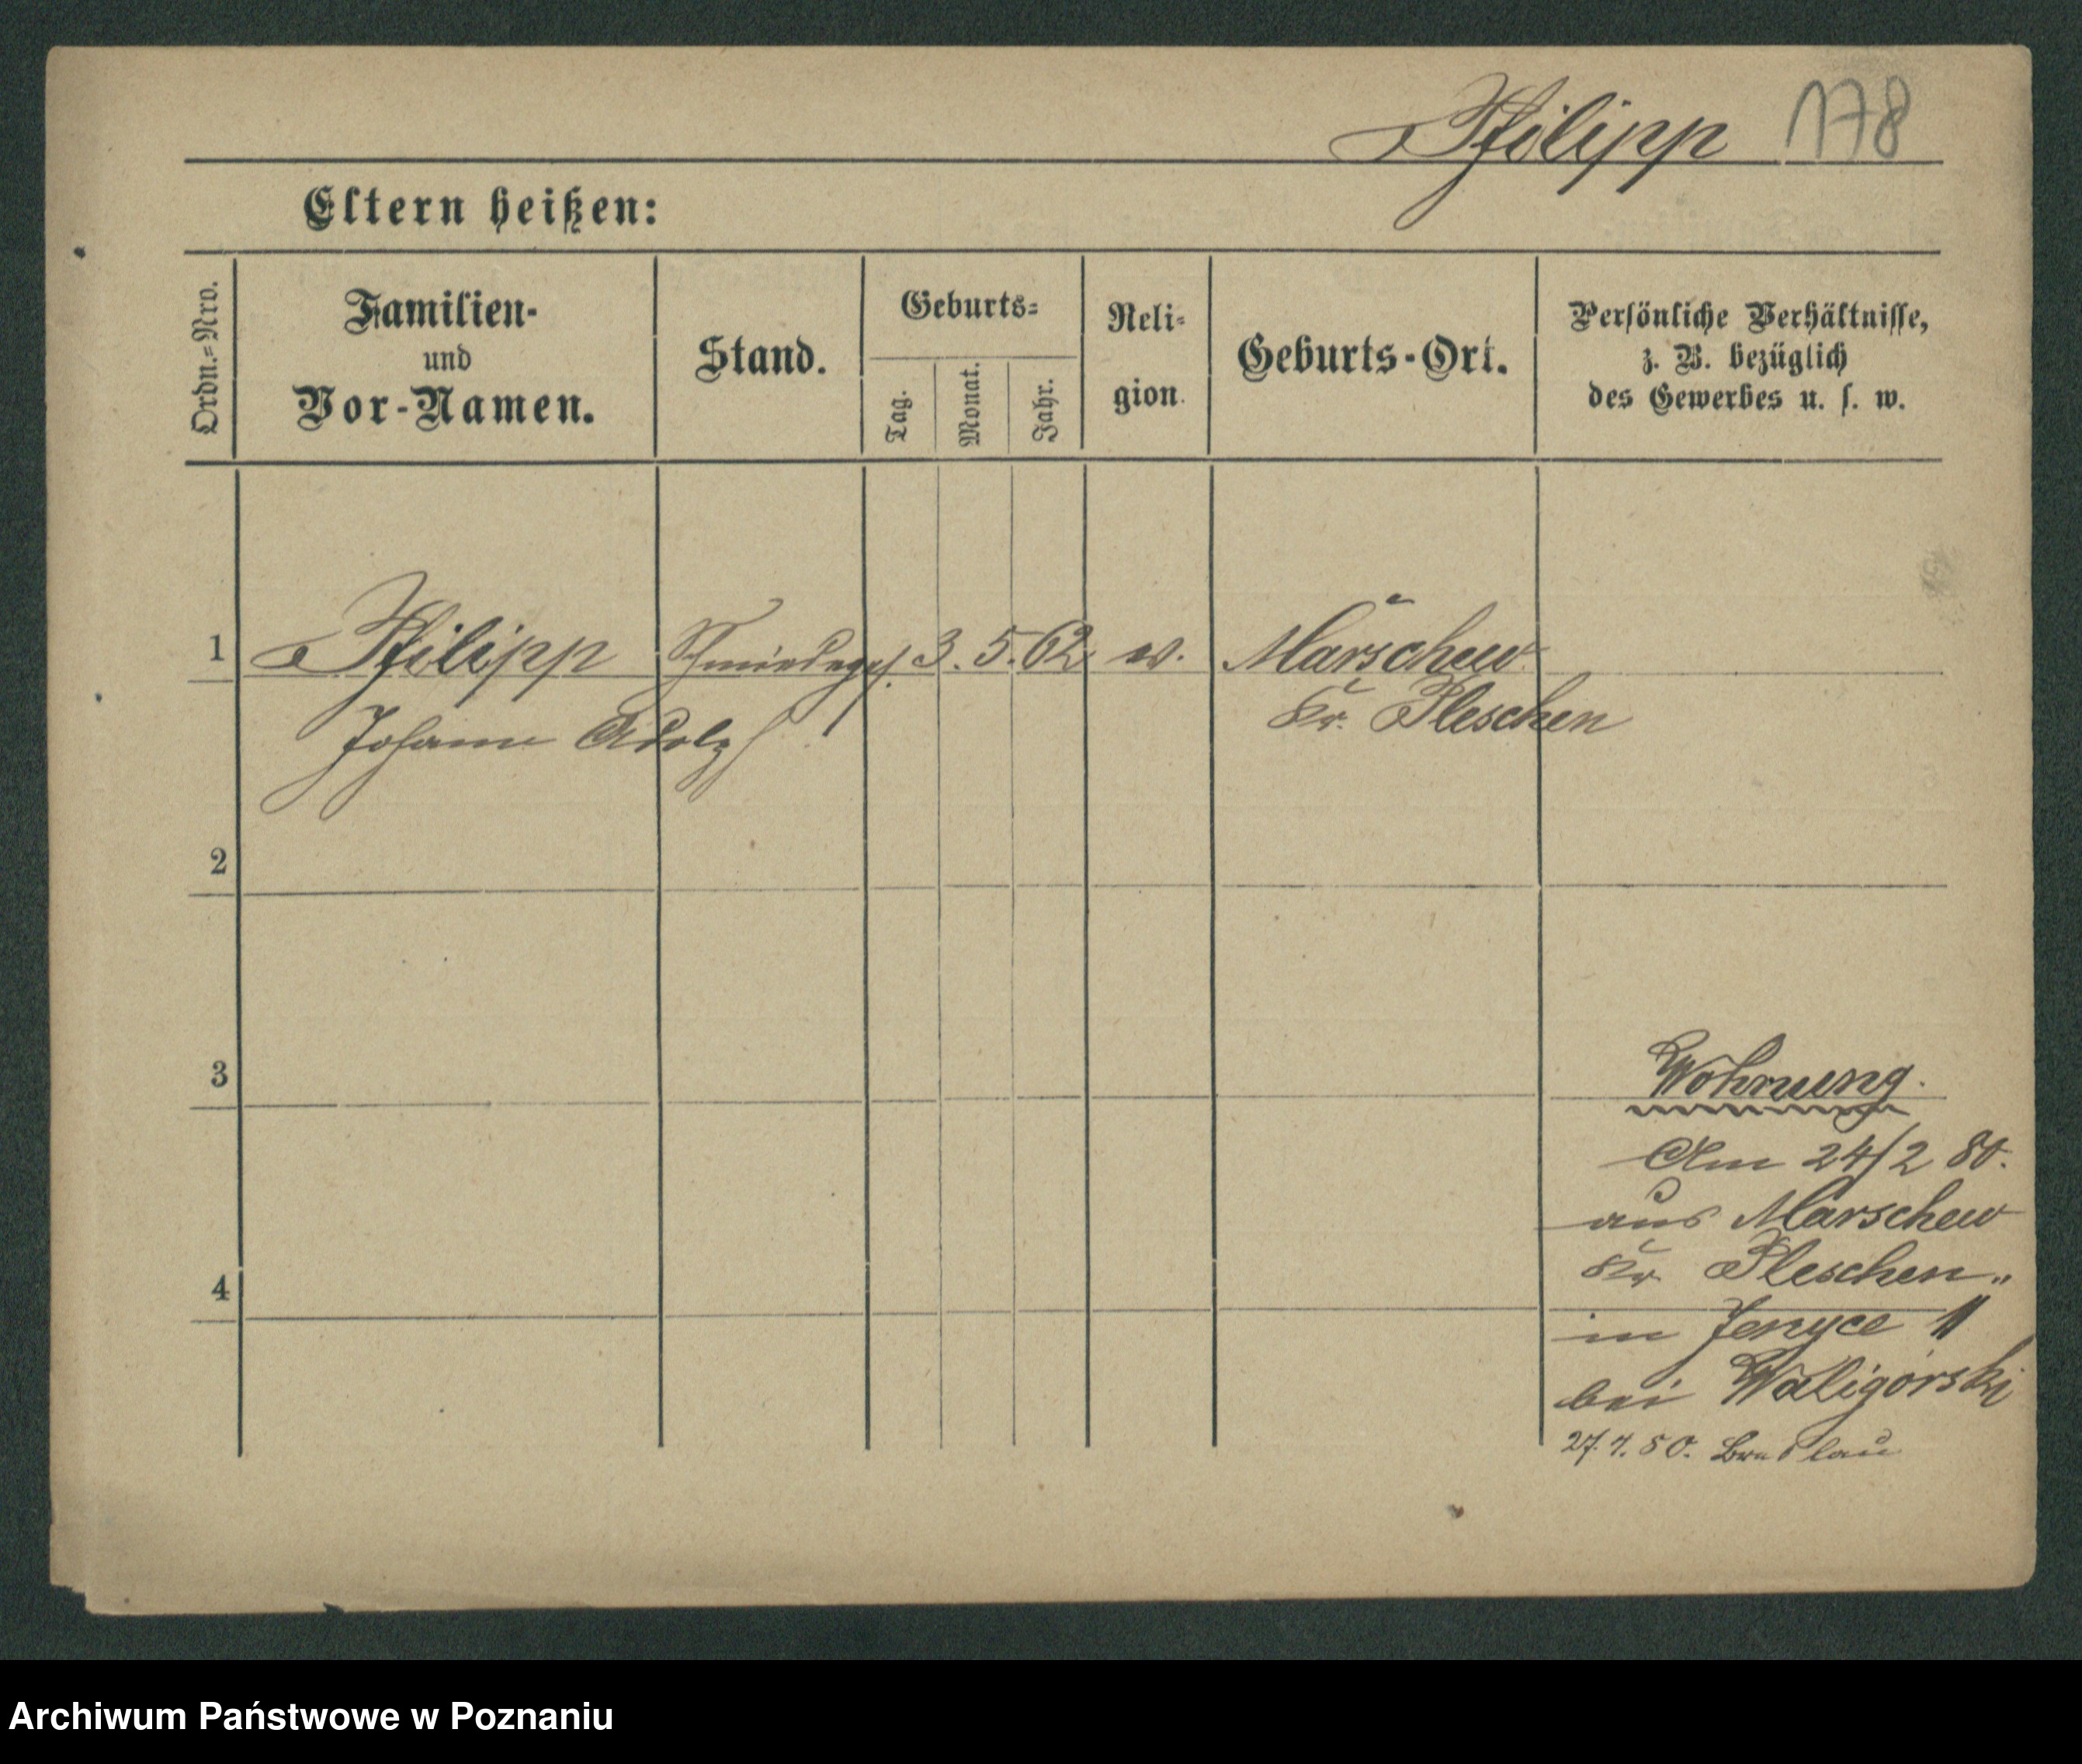 Pfilipp 178
Eltern heißen:
Ordn.=Nro.
Familien-
und
Vor-Namen.
Stand.
Geburts=
Tag.
Monat.
Jahr.
Reli=
gion.
Geburts-Ort.
Persönliche Verhältnisse,
z. B. bezüglich
des Gewerbes u. s. w.
1 Pfilipp Schmiedeges. 3. 5. 62 ev. Marschew
Johann Adolf Kr. Pleschen
2
3
Wohnung.
Am 24/2 80.
aus Marschew
4
Kr. Pleschen
in Jenyce 11
bei Waligorski
27. 7. 80. Breslau
Archiwum Państwowe w Poznaniu